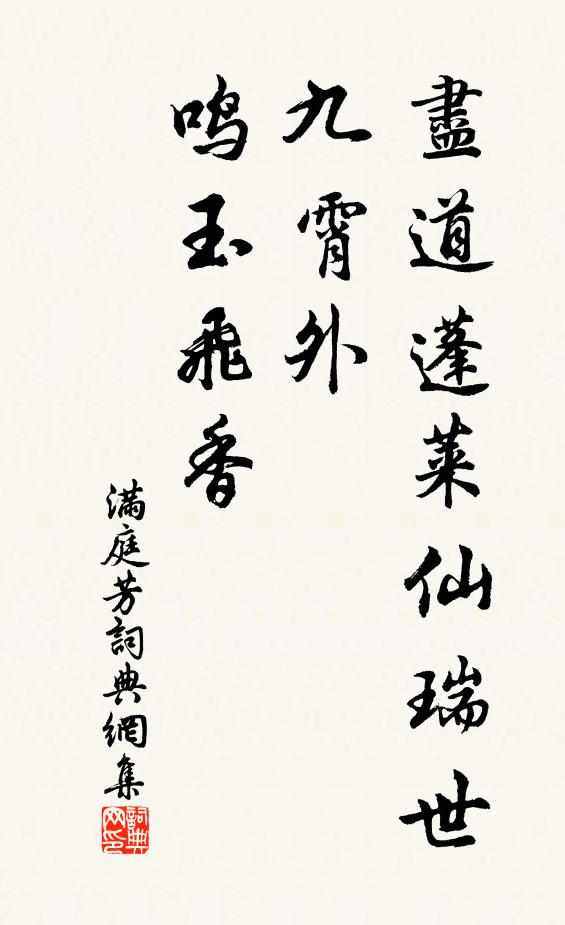 盡道蓬萊仙瑞世
九霄外
鸣玉飛香
滿庭芳詞典網集
詞典
网印